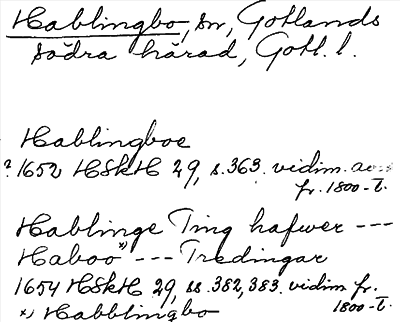 Hablingbo, sn, Gotlands
södra härad, Gotl. l.
Hablingboe
? 1652 HSkH 29, s. 363. vidim.
fr. 1800-t.
Hablinge Ting hafwer ---
Haboo x) --- Tredingar
1654 HSkH 29, ss. 382, 383. vidim. fr.
1800-t.
x) Habblingbo